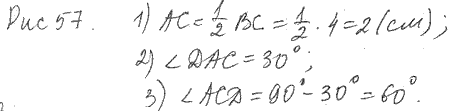 Рис 57. 1) AC = 1/2 BC = 1/2 · 4 = 2 (см);
2) ∠DAC = 30°;
3) ∠ACD = 90° - 30° = 60°.